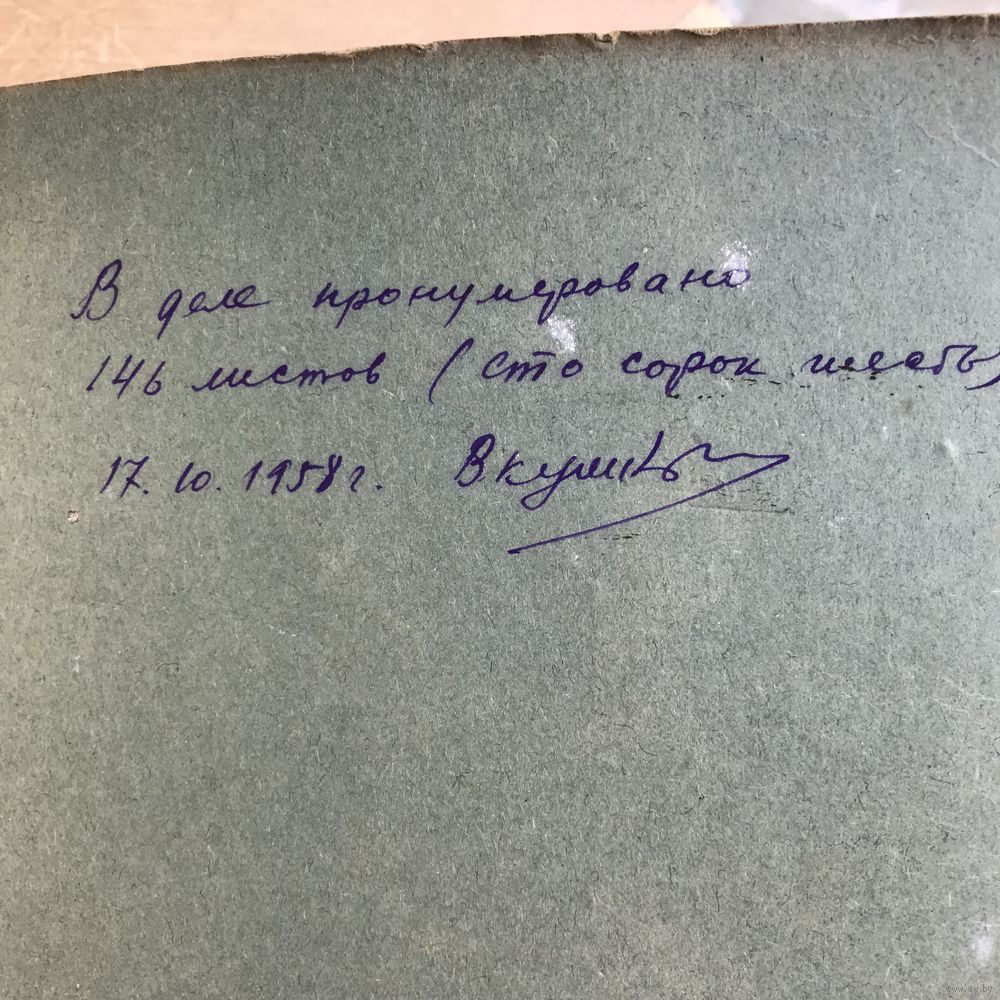 В деле пронумеровано
146 листов (сто сорок шесть)
17.10.1958г.
www.ay.by